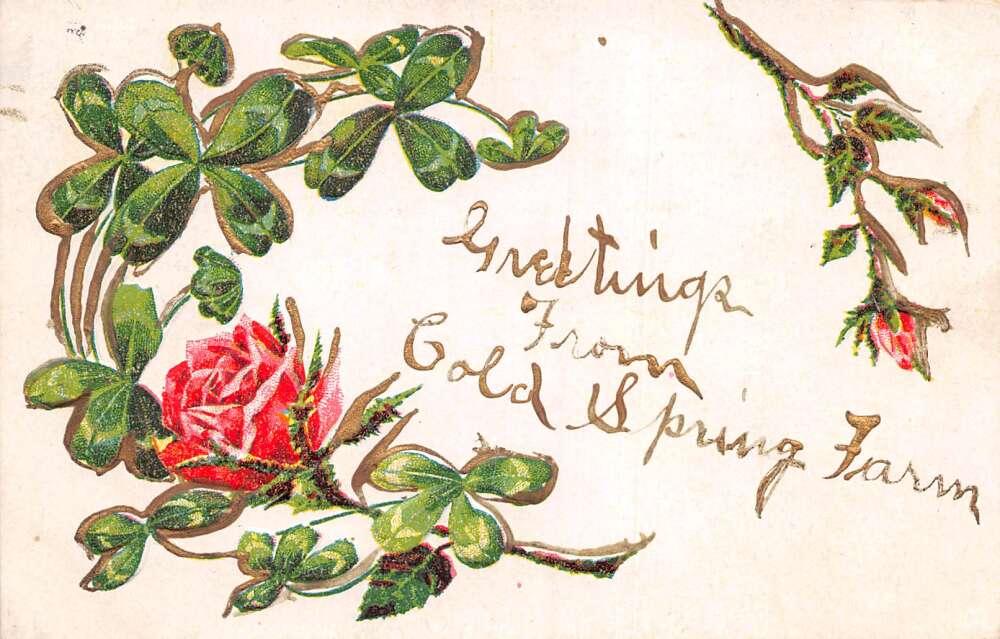 Greetings
From
Cold Spring Farm